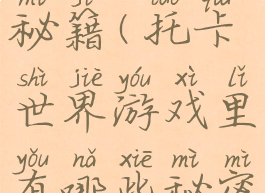 秘籍(托卡
shì jiè yóu xì lǐ
世界游戏里
yǒu nǎ xiē mì mì
有哪些秘密